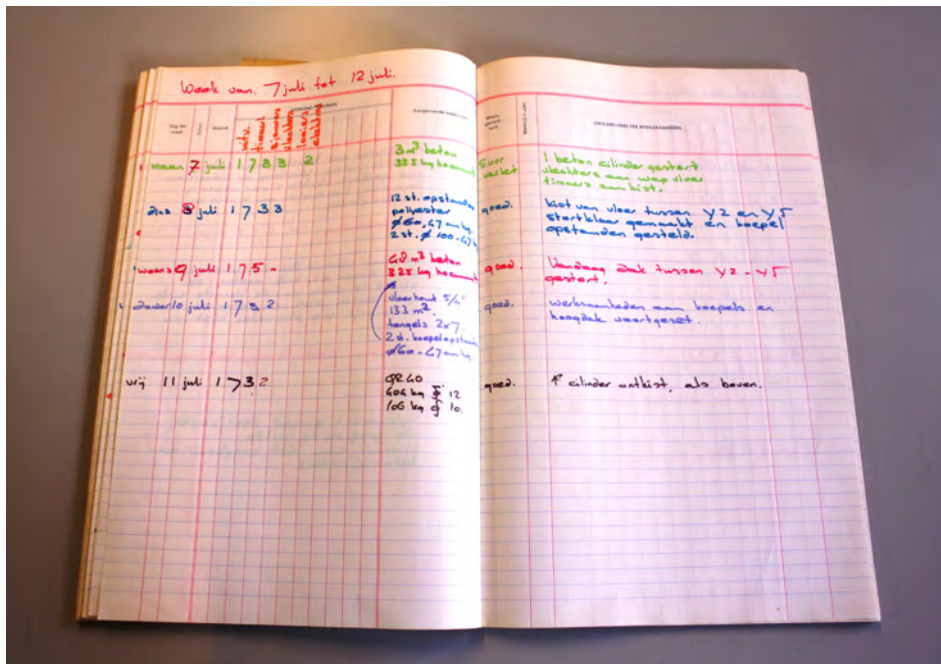 Week van. 7 juli tot 12 juli.
Dag der week
Datum
Weerst.
Aangevoerde materialen
OMSCHRIJVING DER WERKZAAMHEDEN
uitv.
timmerl
vlechters
maan 7 juli 1 7 3 3 2
3 m³ beton
325 kg hoogoven
5 uur
verlet
1 beton cilinder gestort
vlechters aan wap vloer
timmers aan kist.
dins 8 juli 1 7 3 3
12 st. opstanden
polyester
ø 60, 47 cm hg.
2 st. ø 100-47
goed.
kist van vloer tussen Y2 en Y5
stortklaar gemaakt en koepel
opstanden gesteld.
woens 9 juli 1 7 5 -
48 m³ beton
325 kg
goed.
Vandaag dak tussen Y2 - Y5
gestort.
donder 10 juli 1 7 3 2
vloerhout 5/4"
133 m².
tengels 2x7.
2 st. koepelopstanden
ø 60 - 47 cm hg.
goed.
werkzaamheden aan koepels en
hoogdak voortgezet.
vrij 11 juli 1 7 3 2
QR 40
404 kg ø 12
106 kg ø 10.
goed.
1e cilinder ontkist, als boven.